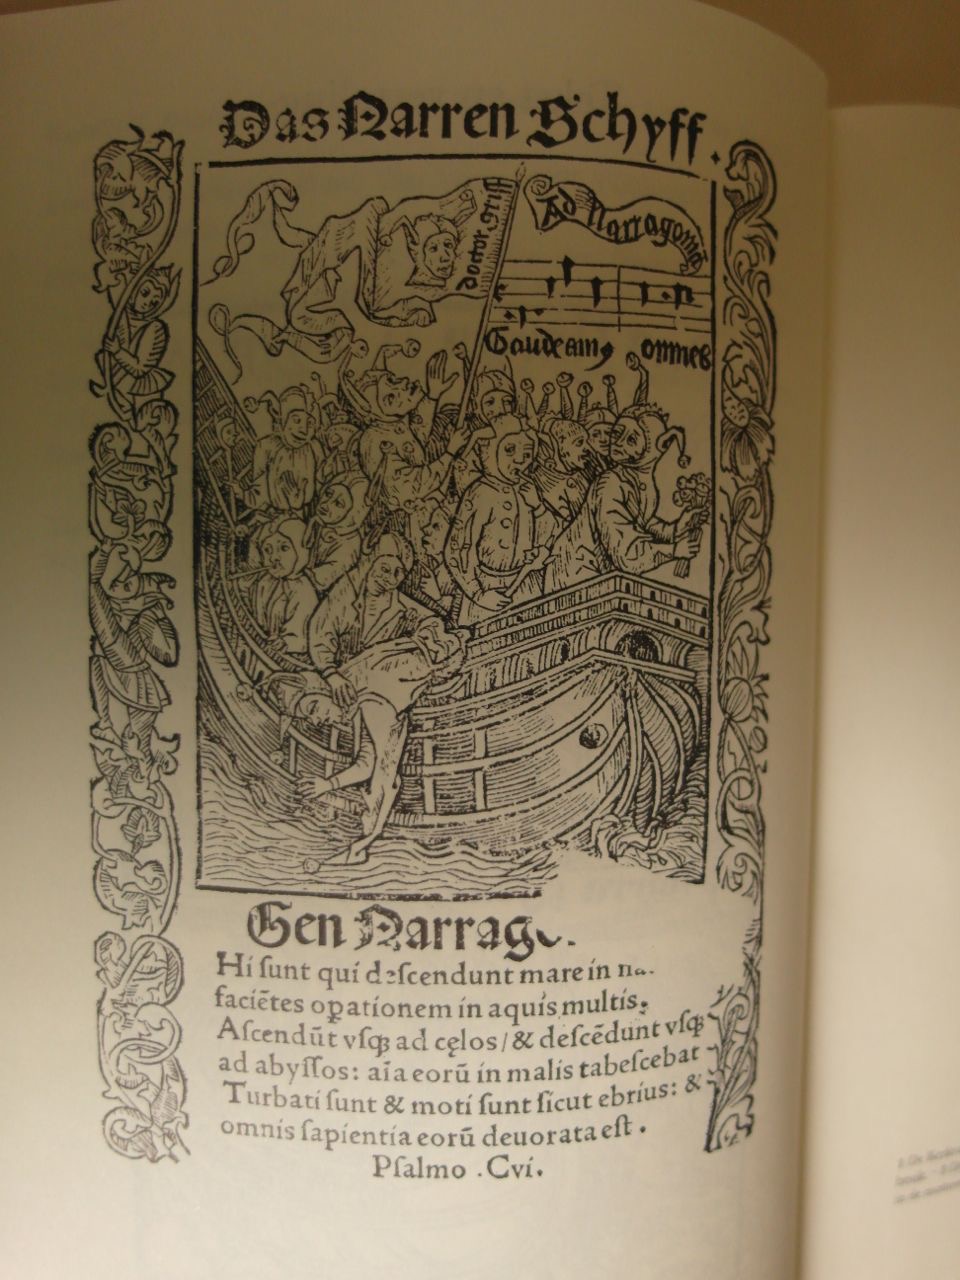 Das Narren Schyff.
doctor griff
Ad Narragoniā
Gaudeamꝰ omnes
Gen Narrag
Hi ſunt qui deſcendunt mare in na
faciētes oꝑationem in aquis multis.
Aſcendūt vſqꝫ ad cęlos/& deſcēdunt vſqꝫ
ad abyſſos: aīa eorū in malis tabeſcebat
Turbati ſunt & moti ſunt ſicut ebrius: &
omnis ſapientia eorū deuorata eſt.
Pſalmo .Cvi.